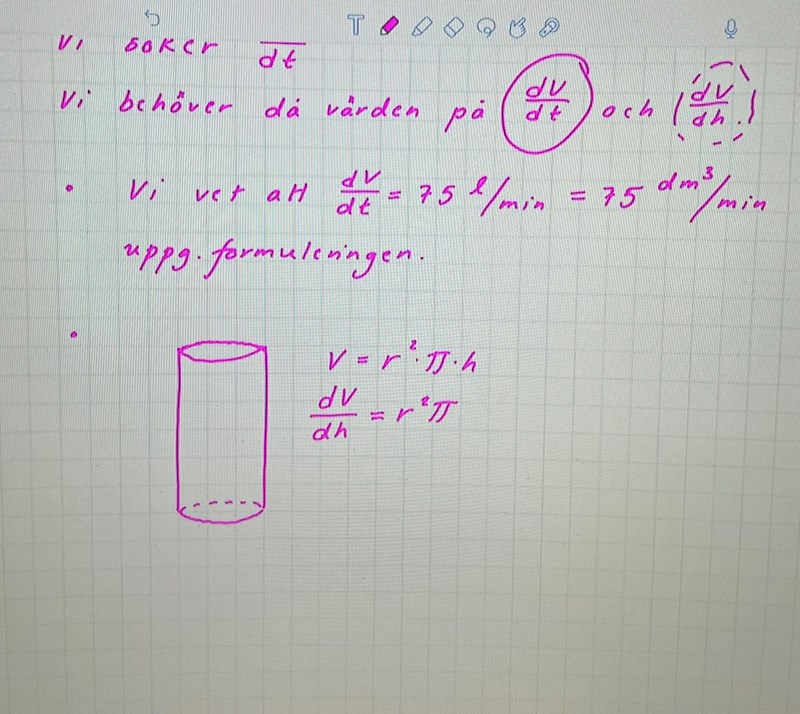 Vi söker dt
Vi behöver då värden på dV/dt och (dV/dh.)
• Vi vet att dV/dt = 75 l/min = 75 dm³/min
uppg. formuleringen.
•
V = r²·π·h
dV/dh = r²π